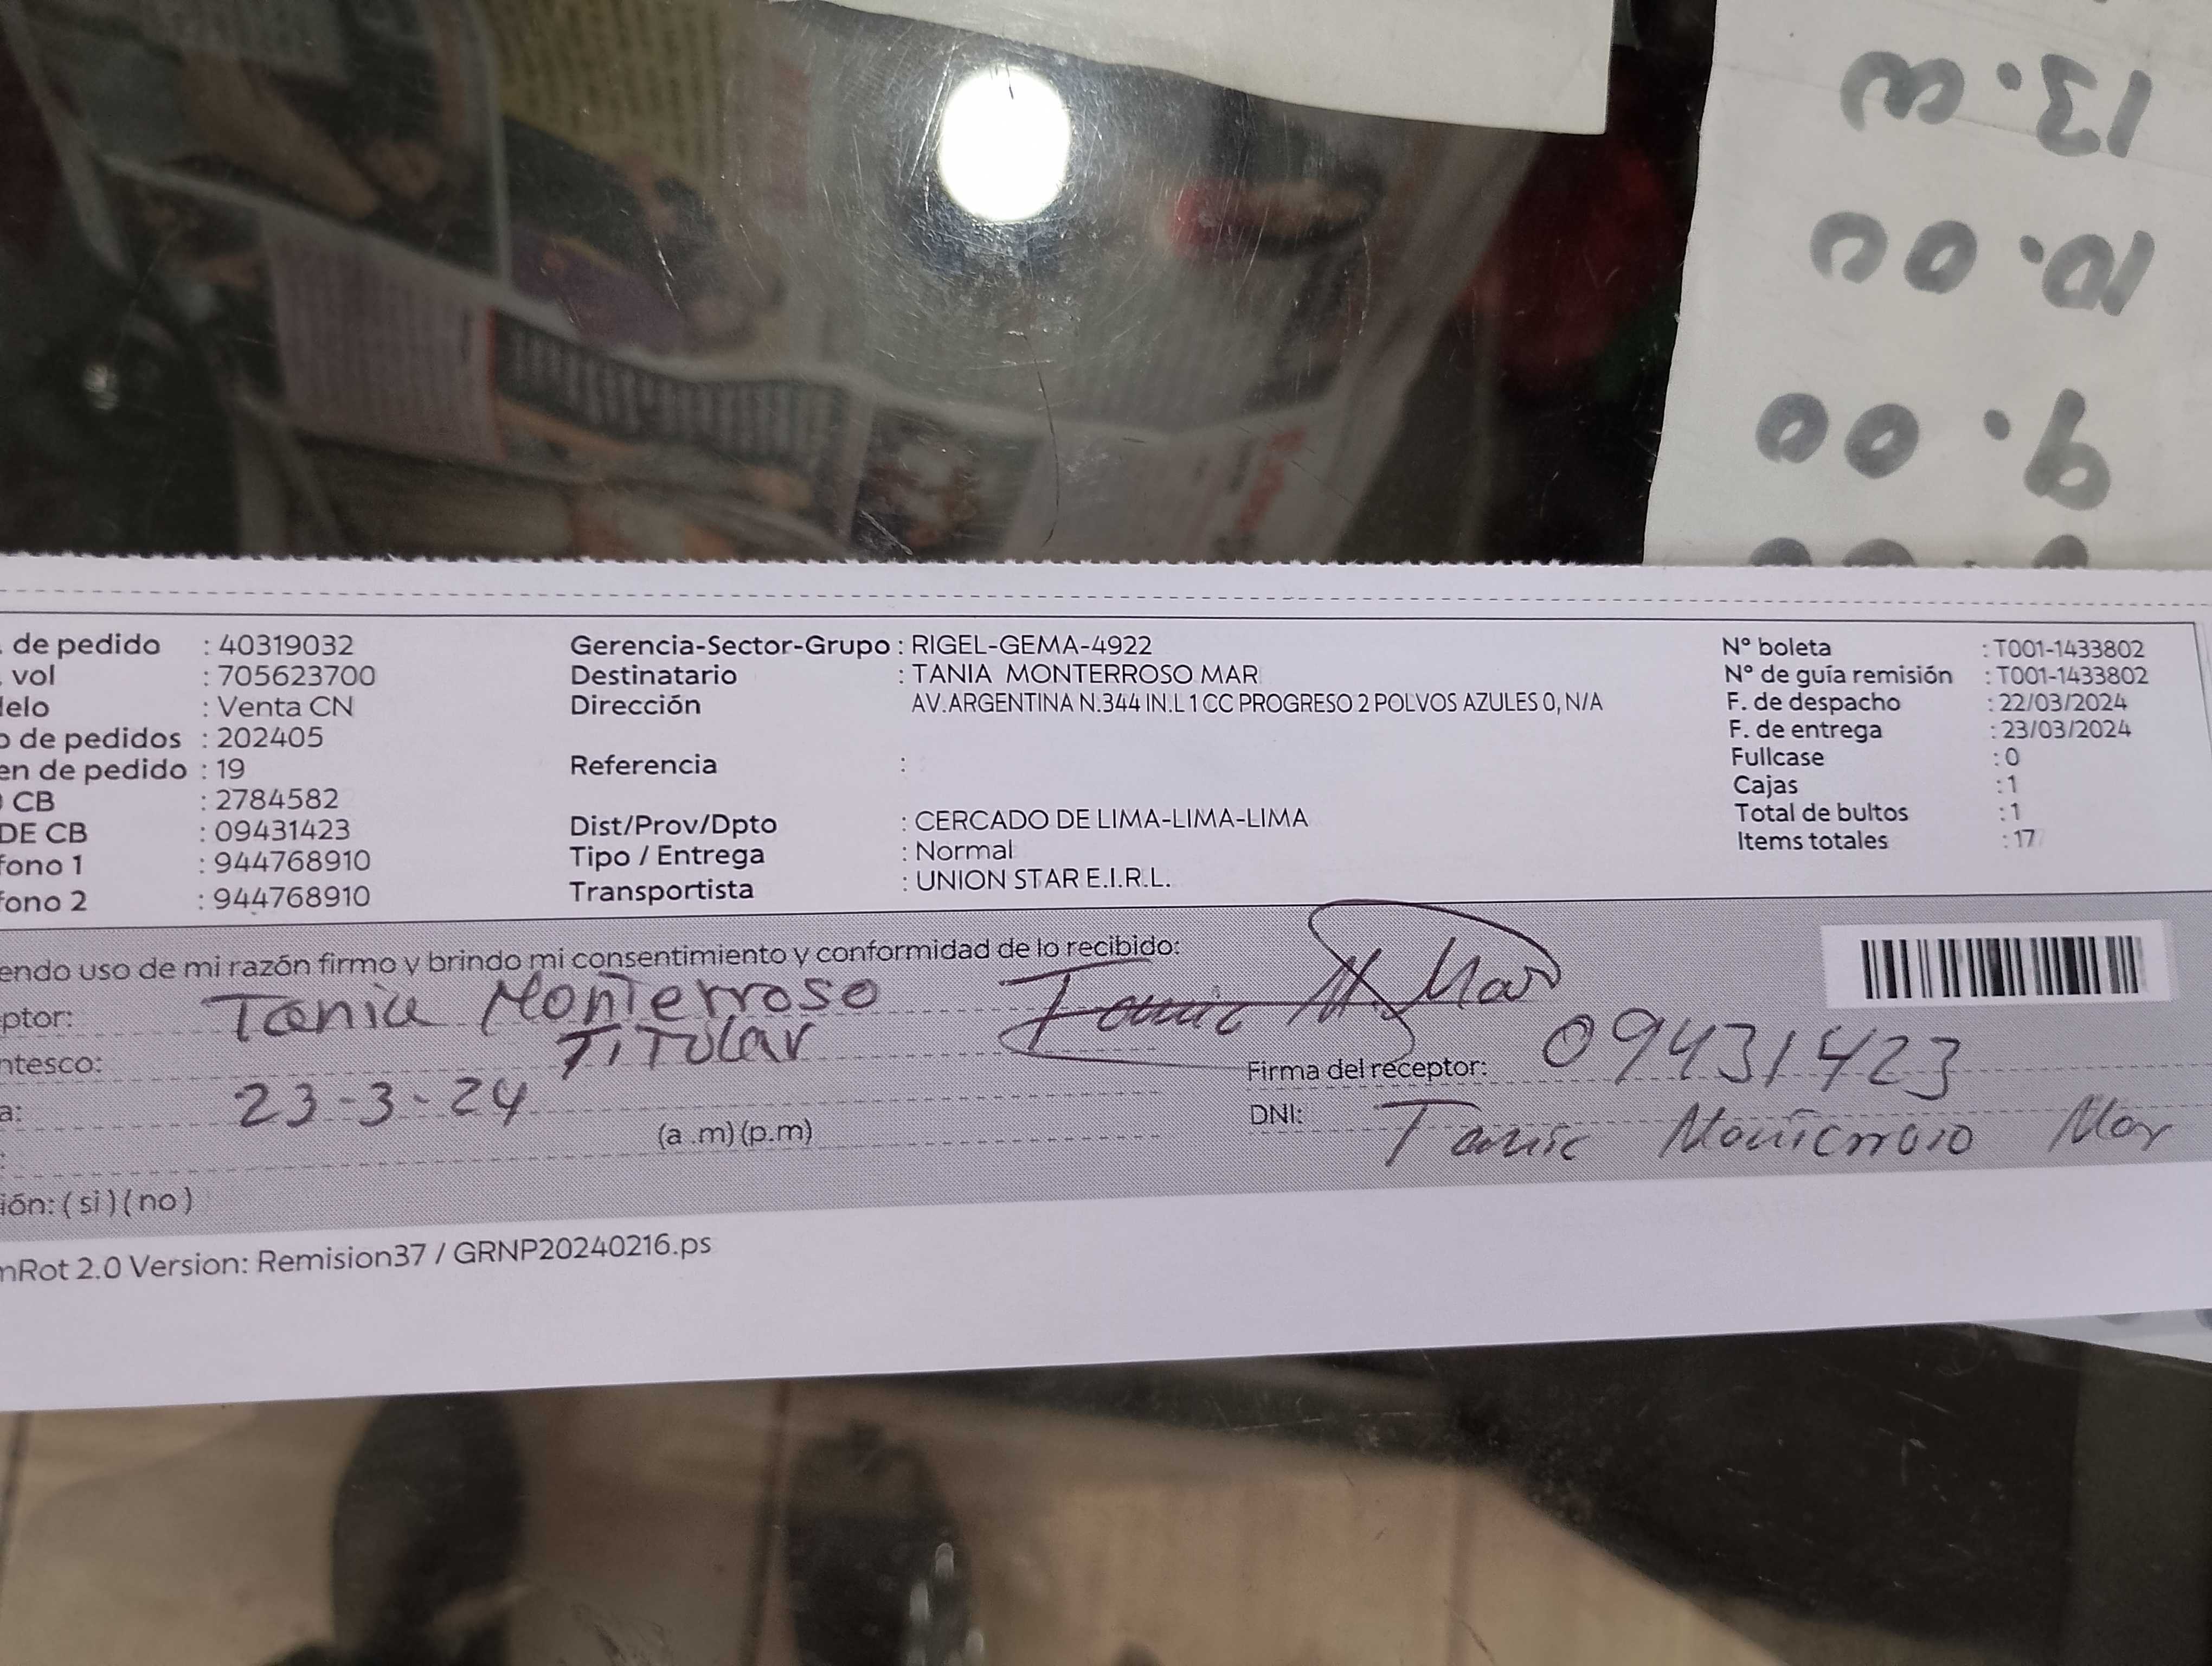 13.00
10.00
9.00
de pedido : 40319032
vol : 705623700
elo : Venta CN
o de pedidos : 202405
en de pedido : 19
CB : 2784582
DE CB : 09431423
fono 1 : 944768910
fono 2 : 944768910
Gerencia-Sector-Grupo : RIGEL-GEMA-4922
Destinatario : TANIA MONTERROSO MAR
Dirección AV.ARGENTINA N.344 IN.L 1 CC PROGRESO 2 POLVOS AZULES 0, N/A
Referencia :
Dist/Prov/Dpto : CERCADO DE LIMA-LIMA-LIMA
Tipo / Entrega : Normal
Transportista : UNION STAR E.I.R.L.
Nº boleta : T001-1433802
Nº de guía remisión : T001-1433802
F. de despacho : 22/03/2024
F. de entrega : 23/03/2024
Fullcase : 0
Cajas : 1
Total de bultos : 1
Items totales : 17
endo uso de mi razón firmo y brindo mi consentimiento y conformidad de lo recibido:
ptor: Tania Monterroso
ntesco: TiTular
a: 23-3-24
(a .m) (p.m)
ión: ( si ) ( no )
Tania M Mar
Firma del receptor: 09431423
DNI: Tania Monterroso Mar
nRot 2.0 Version: Remision37 / GRNP20240216.ps